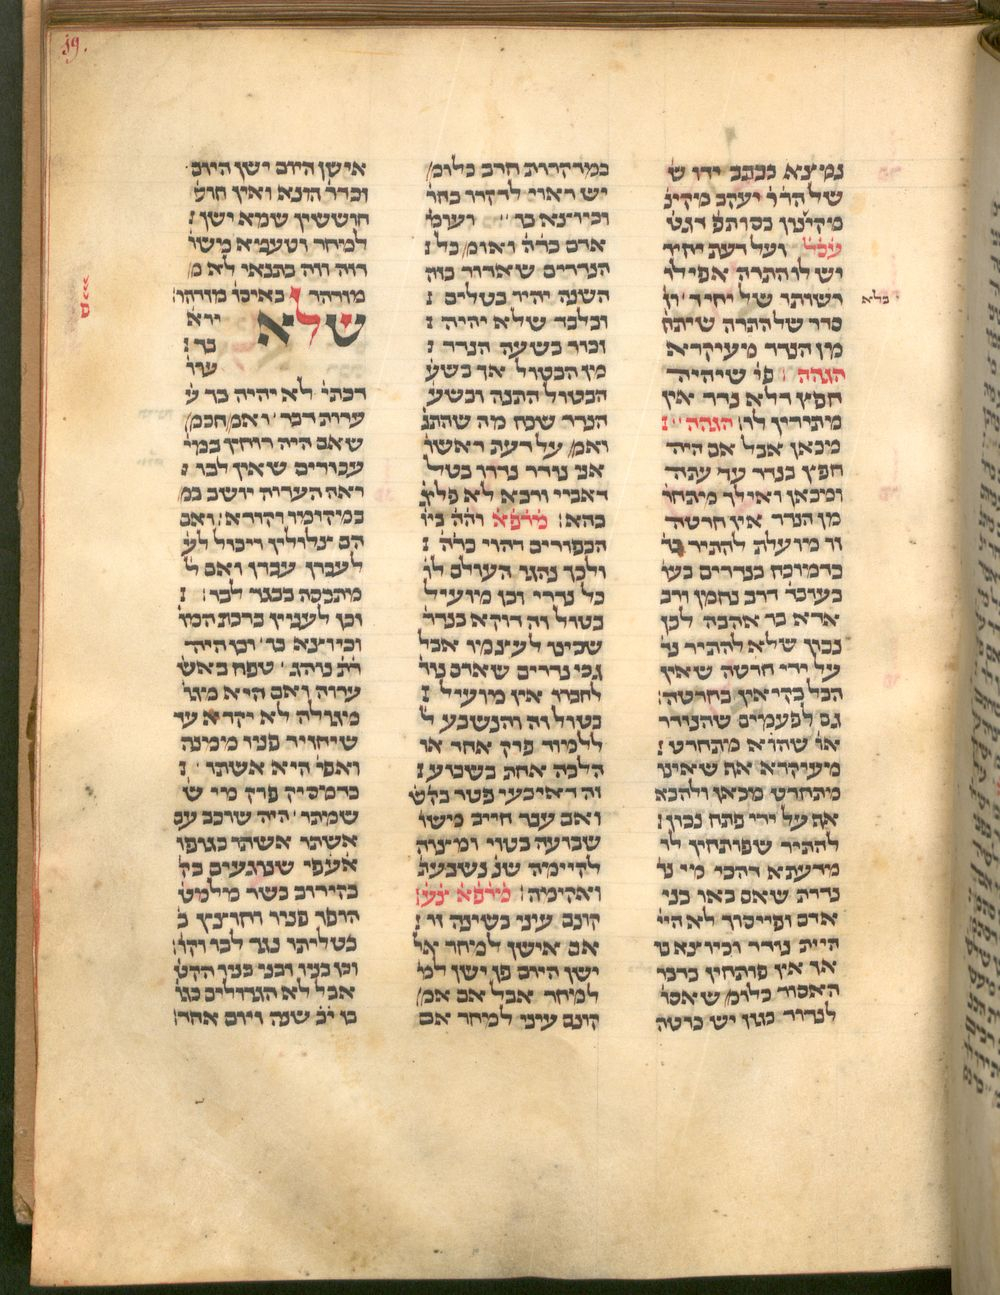 19.
נמצא בכתב ידו ש
של הר״ר יעקב מקינ
מקינון בסותפ׳ דגט
עסל׳ ועל דעת יחיד
יש לו התרה אפילו
רשותו של יחיד ׳וין
בלא
סדר של התרה שיתח
מן הנדר מעיקרא
הגהה׳ פי׳ שיהיה
חפץ דלא נדר אין
מתירין לו׳ הגהה׳
מכאן אבל אם היה
חפץ בנדר עד עתה
ומכאן ואילך מתחר
מן הנדר אין חרטה
זו מועלת להתיר נד
כדמוכח בנדרים בעו
בעובד׳ דרב נחמן ורב
אדא בר אהבה לכן
נכון שלא להתיר נד
על ידי חרטה שאין
הכל בקיאין בחרטה׳
גם לפעמים שהנודר
או׳ שהוא מתחרט
מעיקרא אף שאינו
מתחרט מכאן ולהבא
אף על ידי פתח נכון
להתיר שפותחין לו
מדעתא דהכי מי נד
נדרה שאם באו בני
אדם ופייסוך לא היי
היית נודר וכיוצא ט
אך אין פותחין כדבר
האסור כלומ׳ שאסו
לנדור כגון יש כרטה
במדקרות חרב כלומ׳
יש ראוי לדקרו בחר
וכיוצא בר׳ ועומ׳
אדם בר״ה ואומ׳ כל
הנדרים שאדור בזה
השנה יהיו בטלים
ובלבד שלא יהיה
זכור בשעה הנדר
מן הבטול אך בשע
הבטול התנה ובשע
הנדר שכח מה שהתנ
ואמ׳ על דעת ראשו
אני נודר נדרו בטל
דאביי ורבא לא פליג
בהא׳ מ׳ר׳פ׳א׳ והר״ה ביו
הכפורים דהוי כר״ה
ולכן נהגו העולם לו
כל נדרי וכן מועיל
בטול וה׳ דוקא בנדר
שבינו לעצמו אבל
גבי נדרים שאדם נוד
לחברו אין מועיל
בטול וה׳ והנשבע ל
ללמוד פרק אחד או
הלכה אחת בשבוע
וה׳ דאיבעי׳ פטר בקט
ואם עבר חייב משו
שבועה בטוי ומצוה
לקיימה שנ׳ נשבעתי
ואקימה׳ מ׳ר׳פ׳א׳ ינע׳
קונם עיני בשינה זו
אם אישן למחר אל
ישן היום פן ישן למ
למחר אבל אם אמ׳
קונם עיני למחר אם
אישן היום ישן היום
וכדר׳ הונא ואין חוש
חוששין שמא ישן
למחר וטעמא משו׳
דזה וזה בתנאי לא מ׳
מזדהר׳ באיסו׳ מזדהר׳
שלא ירא
בר
ערו׳
דכתי׳ לא יהיה בך ע
ערות דבר׳ ואמ׳ חכמ׳
שאם היה רוחץ במי
עכורים שאין לבו
רואה הערוה יושב במ
במקומו וקורא׳ ואם
הם צלולין ויכול לע
לעכרן עכרן ואם ל׳
מתכסה בבגד לבו׳
וכן לענין ברכת המו׳
וכיוצא בר׳ וכן היה ר׳
ר״ת נוהג׳ טפח באש
ערוה ואם היא מגו׳
מגולה לא יקרא עד
שיחזיר פניו ממינה
ואפי׳ היא אשתו׳
כדמסיק פרק מי ש
שמתו׳ היה שוכב עם
אשתו׳ אשתו כגופו
אעפ״י שנוגעים בק
בקירוב בשר מילמט
הופך פניו וחוצץ ב
בטליתו נגד לבו וקו׳
וכן בניו ובני ביתו הקט׳
אבל לא הגדולים כגו׳
בן י״ב שנה ויום אחד׳